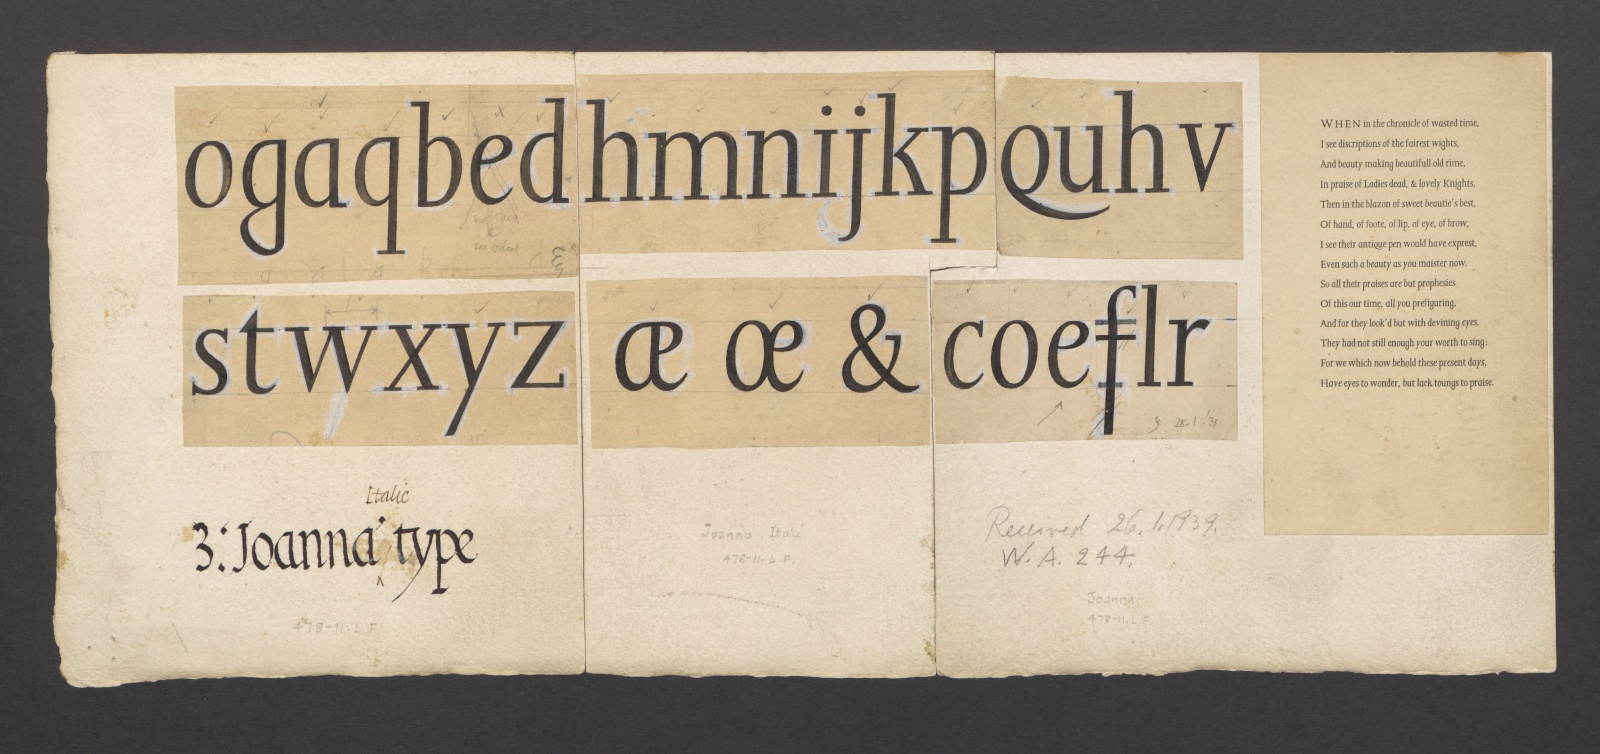 ogaqbed hmnijkp Quhv
stwxyz æ œ & coeflr
28·1·'31
Italic
3: Joanna type
478-11. L F.
Joanna Italic
478-11. L F.
Received 26.1.1939.
W. A. 244.
Joanna
478-11. L F
WHEN in the chronicle of wasted time,
I see discriptions of the fairest wights,
And beauty making beautifull old rime,
In praise of Ladies dead, & lovely Knights,
Then in the blazon of sweet beautie's best,
Of hand, of foote, of lip, of eye, of brow,
I see their antique pen would have exprest,
Even such a beauty as you maister now.
So all their praises are but prophesies
Of this our time, all you prefiguring,
And for they look'd but with devining eyes,
They had not still enough your worth to sing:
For we which now behold these present days,
Have eyes to wonder, but lack toungs to praise.